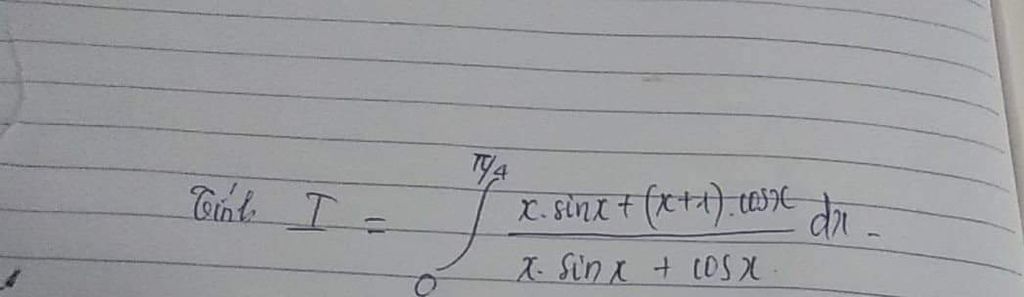 Tính I = ∫₀^{π/4} \frac{x.sinx + (x+1).cosx}{x.sinx + cosx} dx.